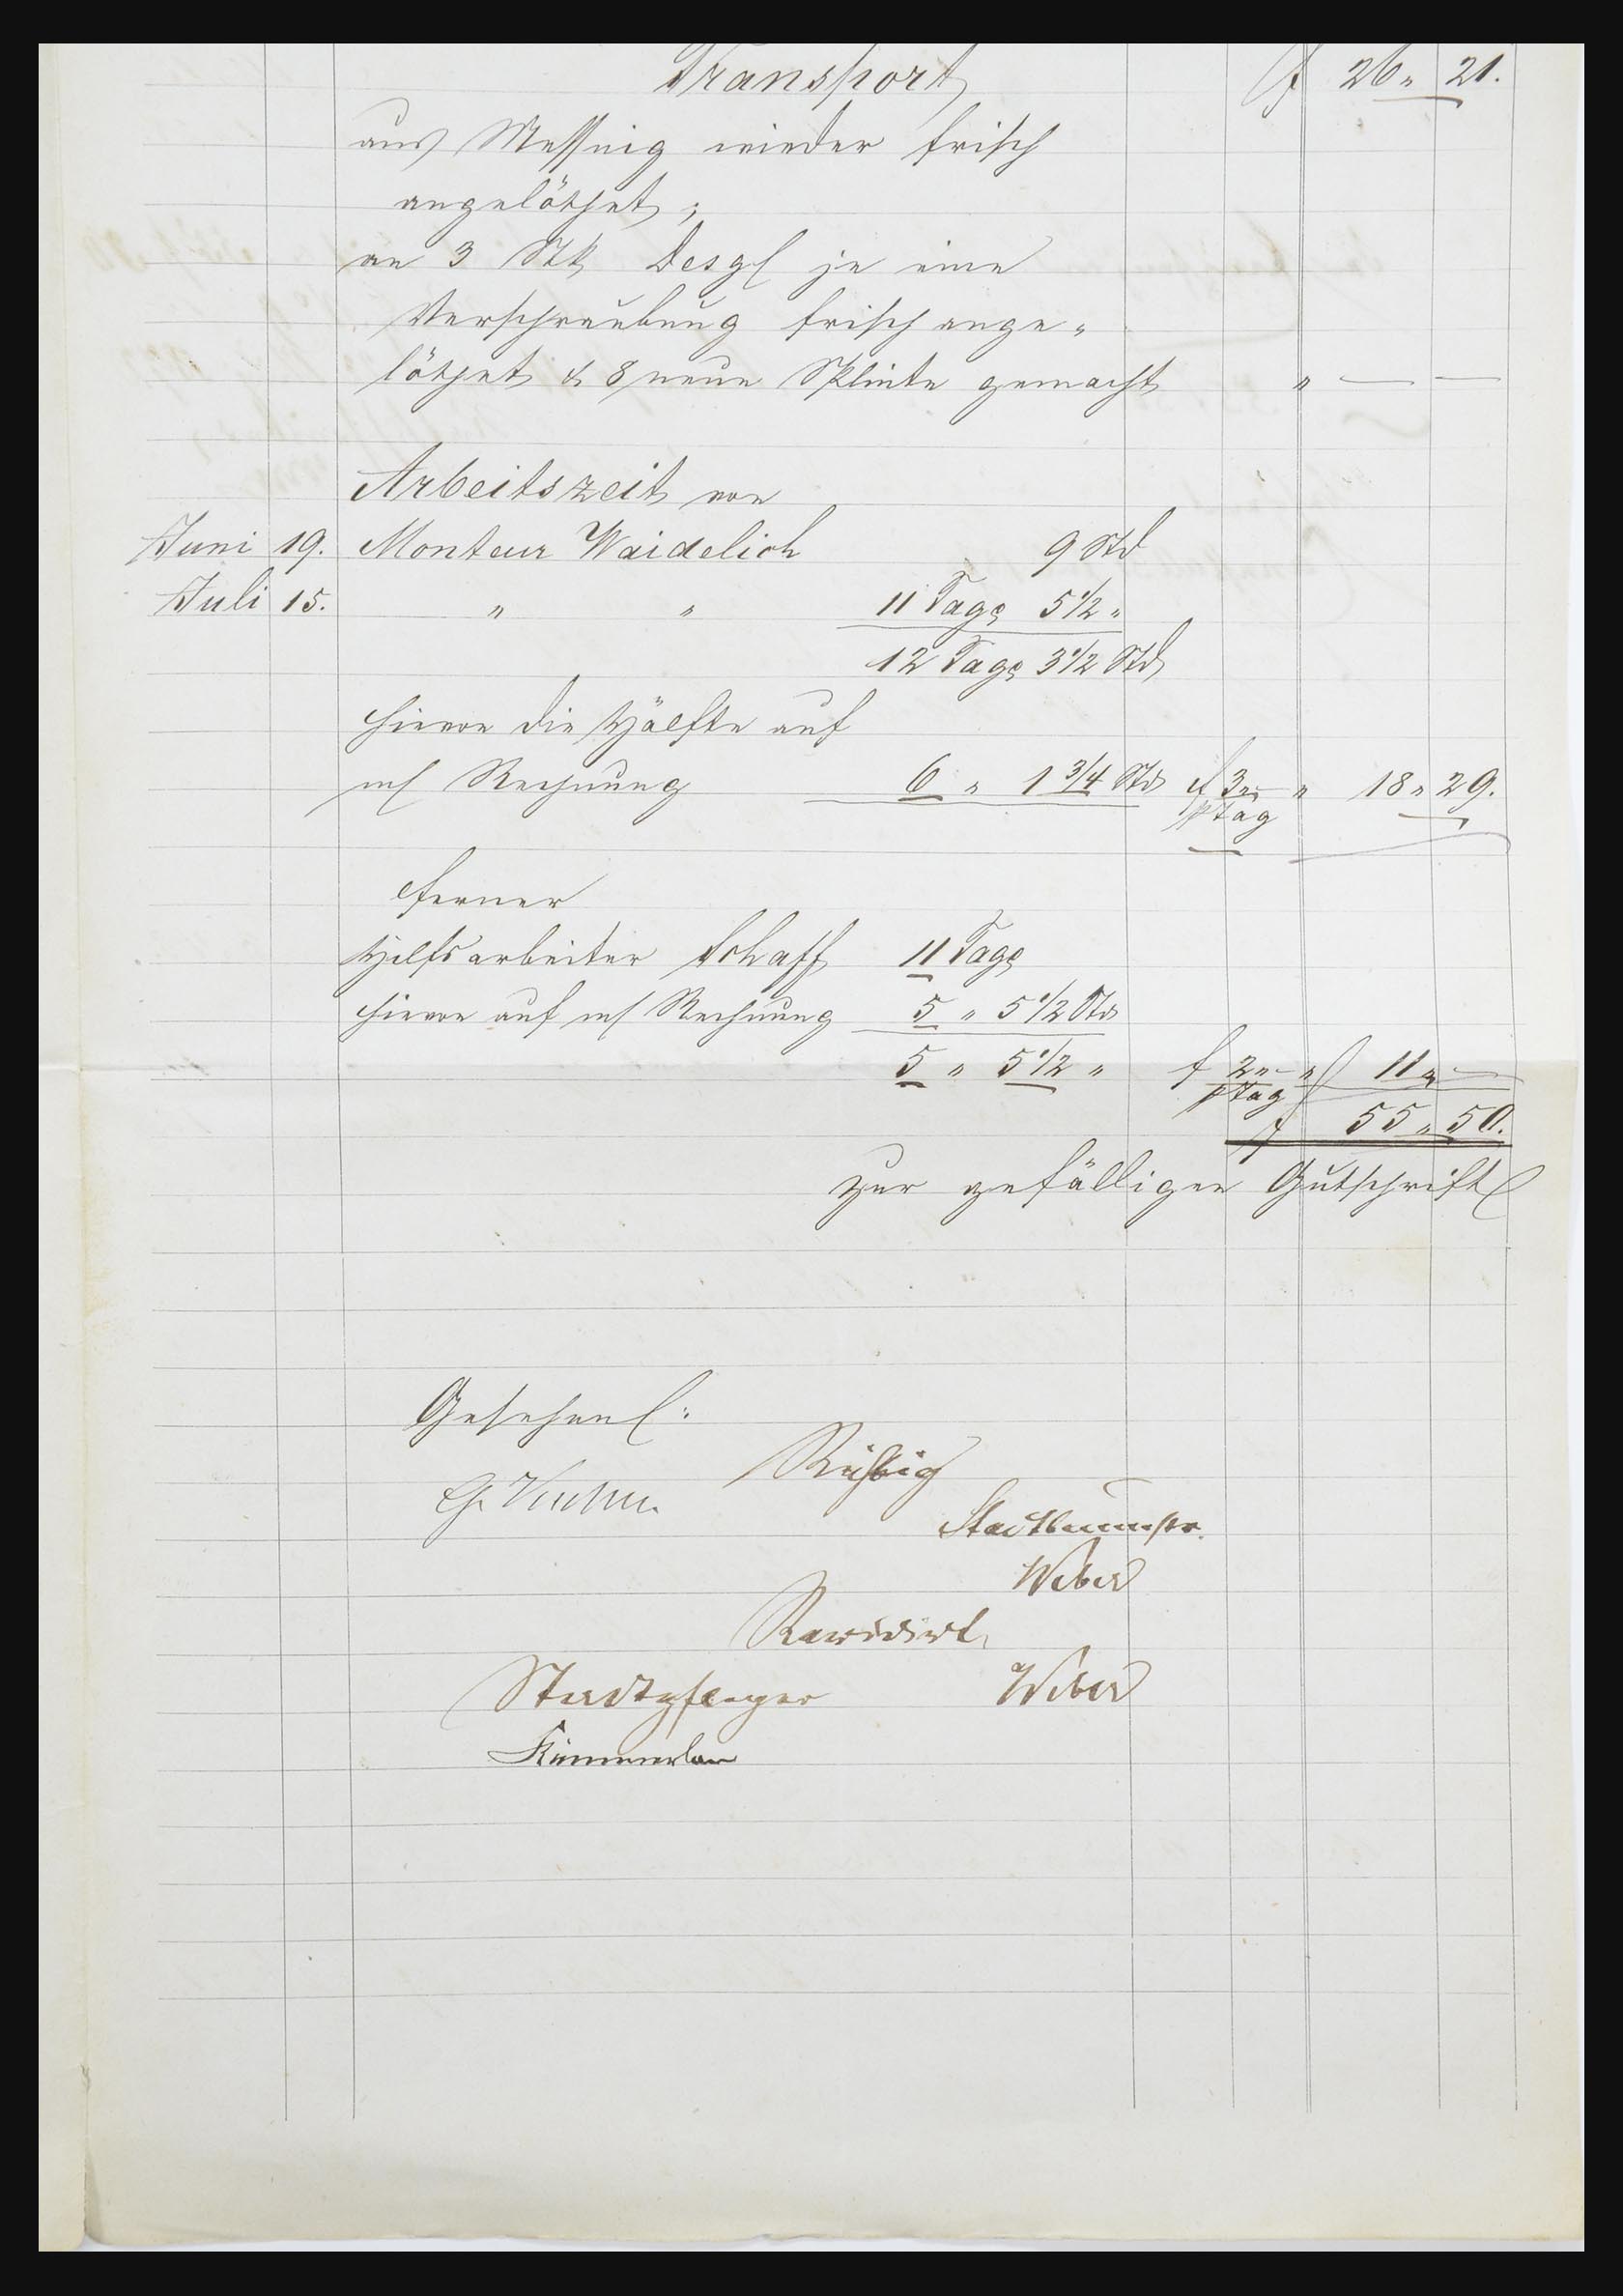 Transport f 26 „ 21.
aus Messing wieder frisch
angelöthet;
an 3 Stk Desgl je eine
Verschraubung frisch ange-
löthet & 8 neue Splinte gemacht „ — —
Arbeitszeit von
Juni 19. Monteur Waidelich 9 Std
Juli 15. „ „ 11 Tage 5 1/2 „
12 Tage 3 1/2 Std
hievon die Hälfte auf
m/ Rechnung 6 „ 1 3/4 Std f 3 „ – „ 18 „ 29.
p Tag
ferner
Hilfsarbeiter Schaff 11 Tage
hievon auf m/ Rechnung 5 „ 5 1/2 Std
5 „ 5 1/2 „ f 2 „ – „ 11 „ —
p Tag
f 55 „ 50.
zur gefälligen Gutschrift
Gesehen:
Richtig
G. Kuhn.
Stadtbaumstr.
Weber
Revidirt,
Stadtpfleger Weber